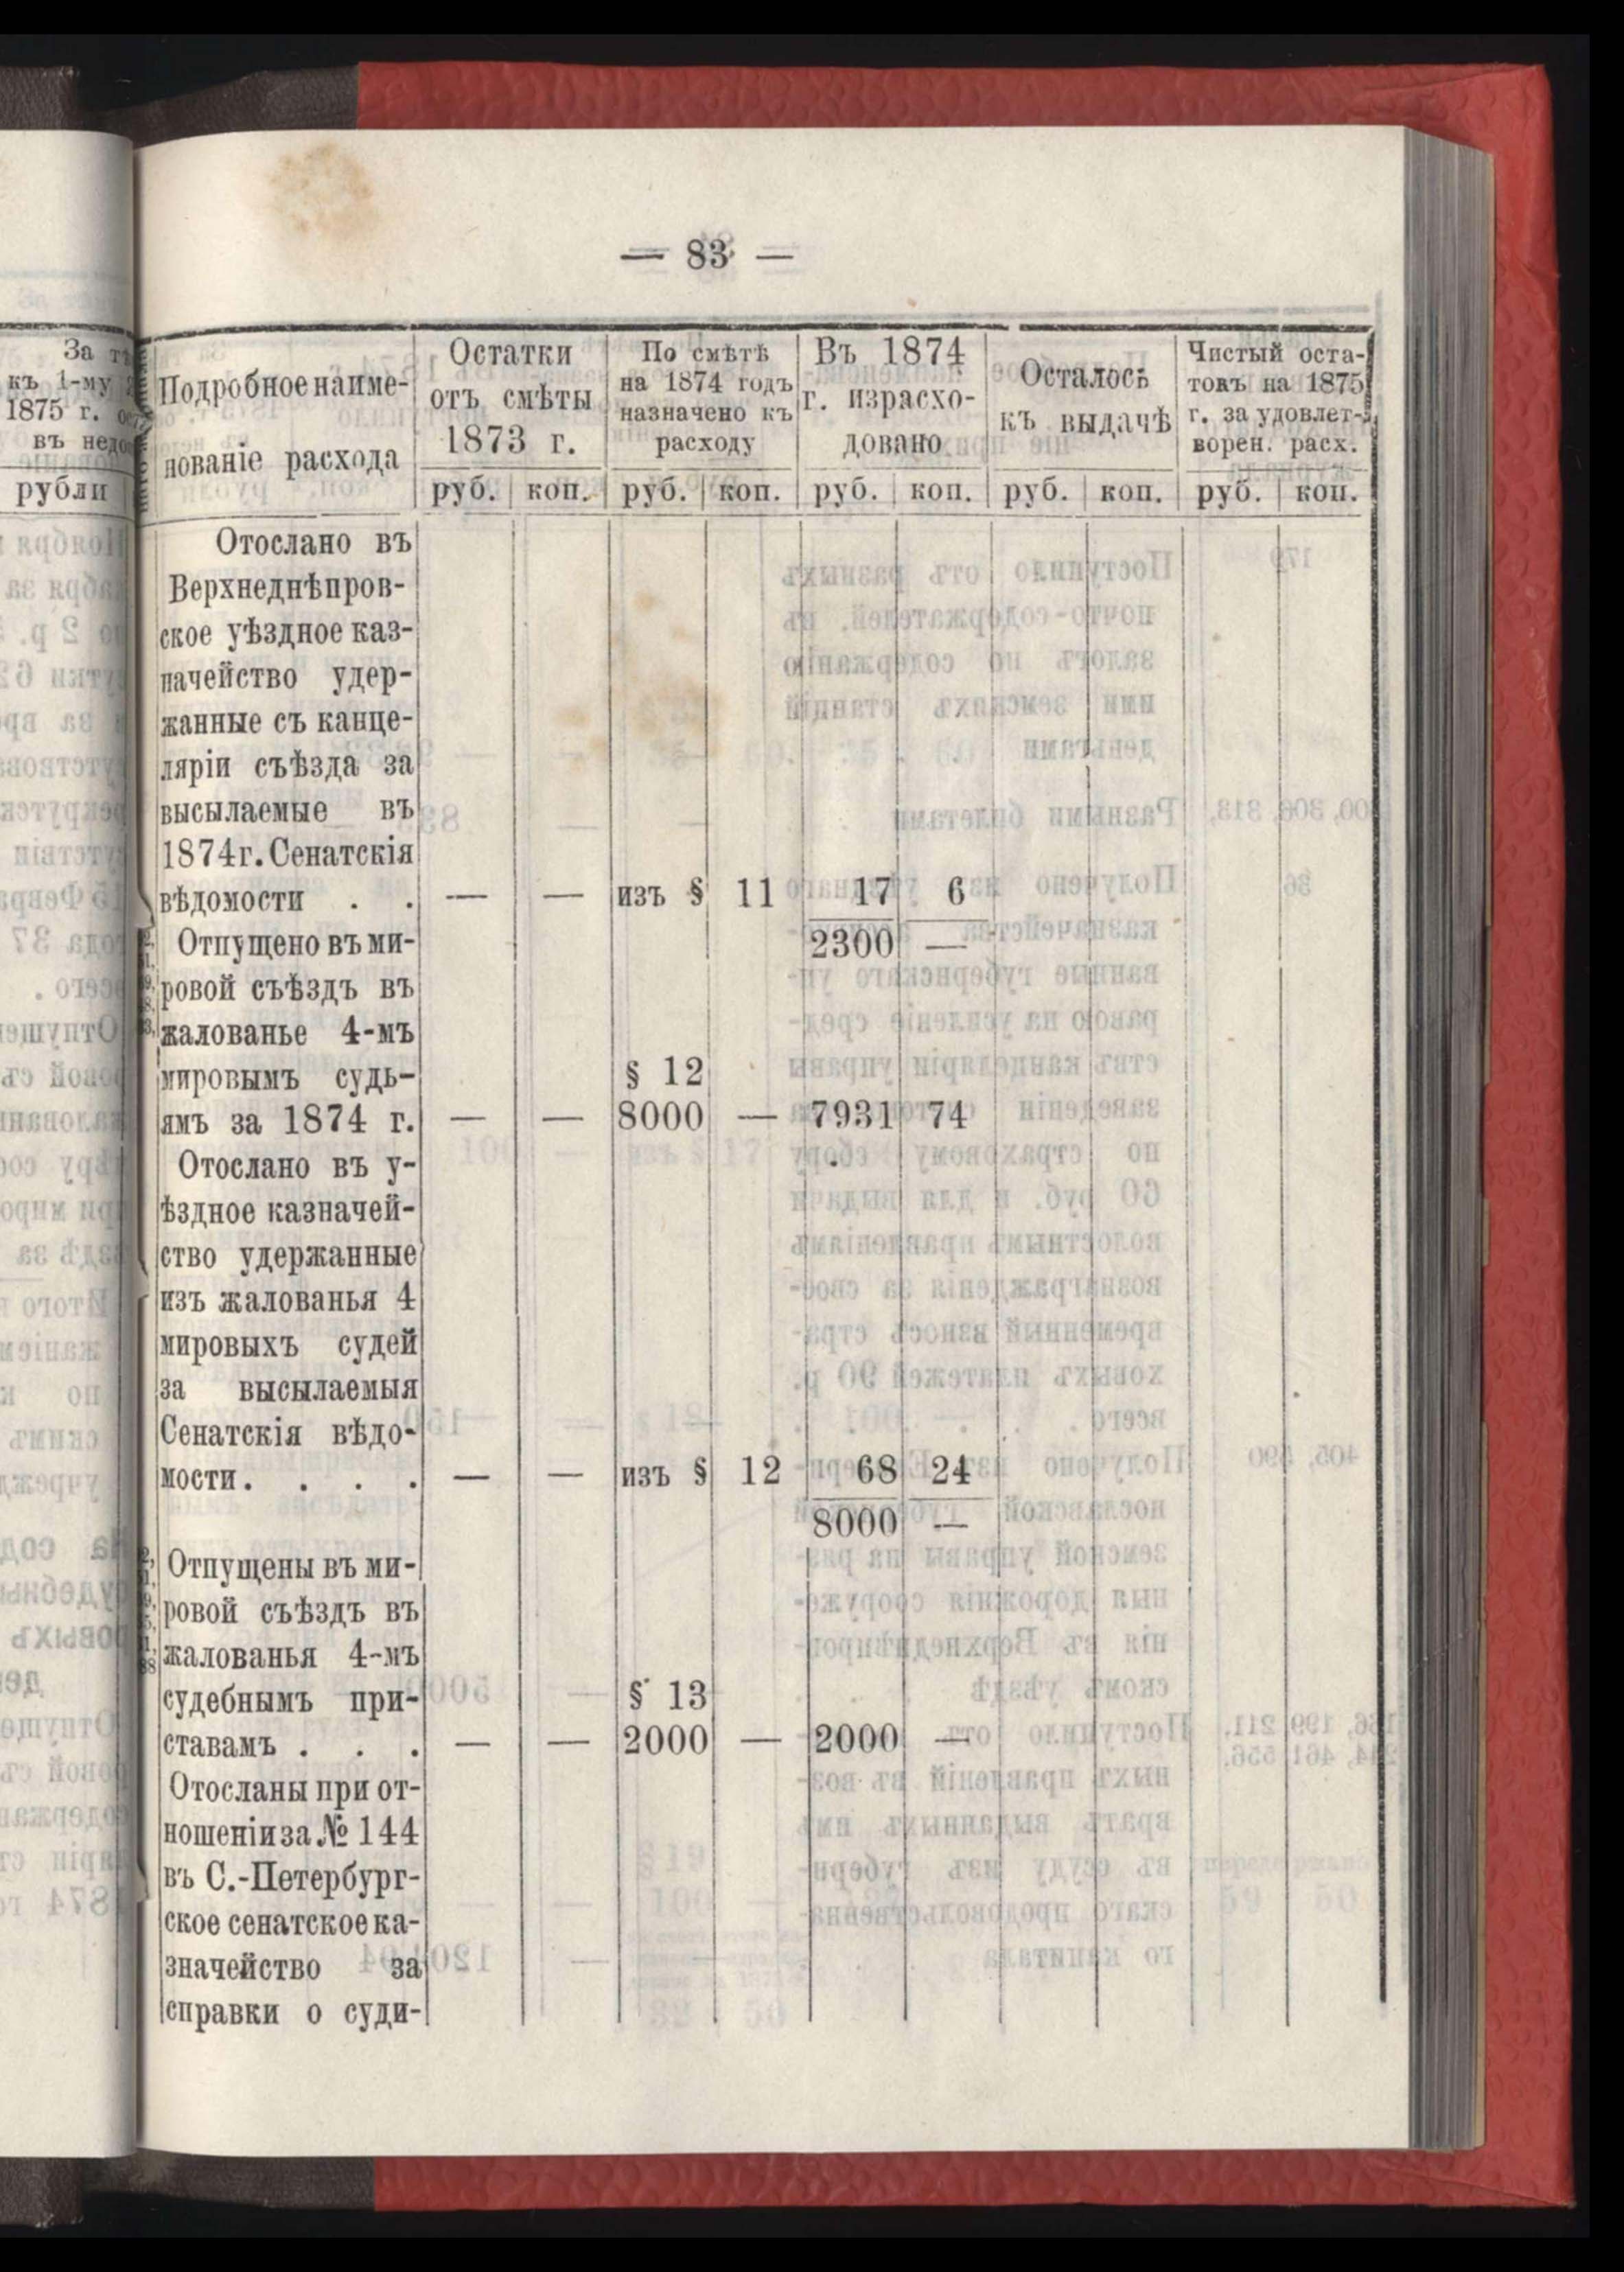 — 83 —
За
къ 1-му
1875 г.
въ
рубли
Подробное наиме-
нованіе расхода
Остатки
отъ смѣты
1873 г.
По смѣтѣ
на 1874 годъ
назначено къ
расходу
Въ 1874
г. израсхо-
довано
Осталось
къ выдачѣ
Чистый оста-
токъ на 1875
г. за удовлет-
ворен. расх.
руб. коп. руб. коп. руб. коп. руб. коп. руб. коп.
Отослано въ
Верхнеднѣпров-
ское уѣздное каз-
начейство удер-
жанные съ канце-
ляріи съѣзда за
высылаемые въ
1874г. Сенатскія
вѣдомости . . — — изъ § 11 17 6
Отпущено въ ми- 2300 —
ровой съѣздъ въ
жалованье 4-мъ
мировымъ судь- § 12
ямъ за 1874 г. — — 8000 — 7931 74
Отослано въ у-
ѣздное казначей-
ство удержанные
изъ жалованья 4
мировыхъ судей
за высылаемыя
Сенатскія вѣдо-
мости. . . . — — изъ § 12 68 24
8000 —
Отпущены въ ми-
ровой съѣздъ въ
жалованья 4-мъ
судебнымъ при- § 13
ставамъ . . . — — 2000 — 2000 —
Отосланы при от-
ношеніи за № 144
въ С.-Петербург-
ское сенатское ка-
значейство за
справки о суди-